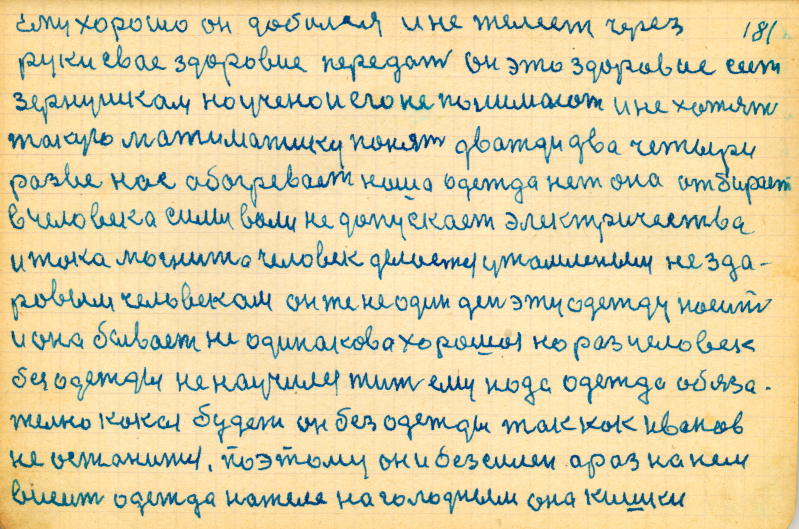 ему хорошо он добился и не желеет через 181
руки свае здоровие передат он это здоровие сеет
зернушкам но учено и его не понимают и не хотят
такую матиматику понят дважди два четыри
разве нас абогревает наша одежда нет она отбирает
в человека сили воли не допускает электричества
и тока могнита человек делаетця утамлёным не зда-
ровым человекам он же не один ден эту одежду носит
и она бывает не одинакова хорошоя но раз человек
без одежды не научился жит ему нада одежда обяза-
телно какая будет он без одежды так как иванов
не останитця. поэтому он и безсилен а раз на нем
висит одежда на теле на голодным она кишки